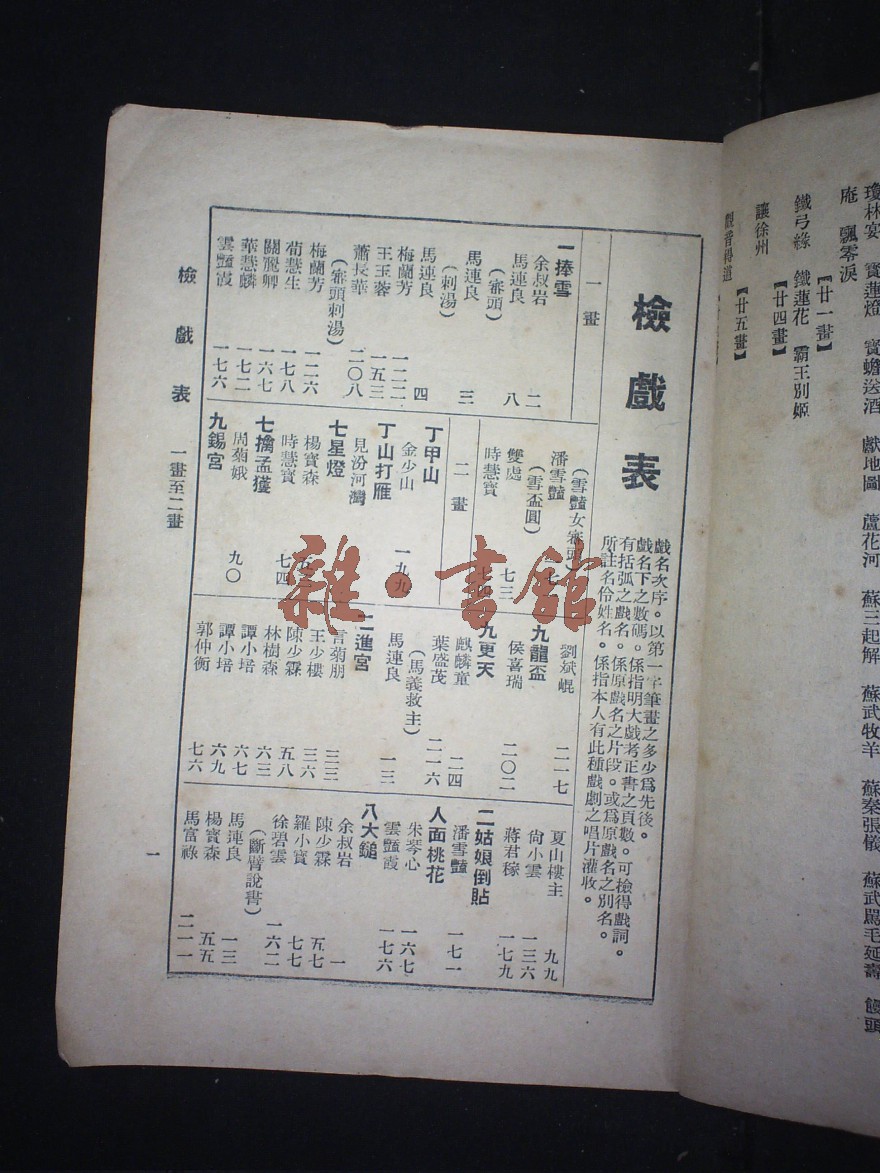 瓊林宴　寶蓮燈　寶蟾送酒　獻地圖　蘆花河　蘇三起解　蘇武牧羊　蘇秦張儀　蘇武罵毛延壽　饅頭
庵　飄零淚
【廿一畫】
鐵弓緣　鐵蓮花　霸王別姬
【廿四畫】
讓徐州
【廿五畫】
觀音得道
檢戲表
戲名次序。以第一字筆畫之多少爲先後。
戲名下之數碼。係指明大戲考正書之頁數。可檢得戲詞。
有括弧之戲名。係原戲名之片段。或爲原戲名之別名。
所註名伶姓名。係指本人有此種戲劇之唱片灌收。
一畫
一捧雪
余叔岩　二
馬連良　八
（審頭）
馬連良　三
（刺湯）
馬連良　四
梅蘭芳　一二二
王玉蓉　一五三
蕭長華　二〇八
（審頭刺湯）
梅蘭芳　一二六
荀慧生　一七八
關麗卿　一六七
華慧麟　一七二
雲豔霞　一七六
（雪豔女審頭）
潘雪豔
（雪盃圓）
雙處　七三
時慧寶　七四
二畫
丁甲山
金少山　一九九
丁山打雁
見汾河灣
七星燈
楊寶森
時慧寶　七四
七擒孟獲
周菊娥　九〇
九錫宮
劉斌崐　二一七
九龍盃
侯喜瑞　二〇二
九更天
麒麟童　二四
葉盛茂　二一六
（馬義救主）
馬連良　一三
二進宮
言菊朋　三三
王少樓　三六
陳少霖　五八
林樹森　六三
譚小培　六七
譚小培　六九
郭仲衡　七六
夏山樓主　九九
尙小雲　一三六
蔣君稼　一七九
二姑娘倒貼
潘雪豔　一七一
人面桃花
朱琴心　一六七
雲豔霞　一七六
八大鎚
余叔岩　一
陳少霖　五七
羅小寶　七七
徐碧雲　一六二
（斷臂說書）
馬連良　一三
楊寶森　五五
馬富祿　二一一
檢戲表　一畫至二畫
一
雜·書館